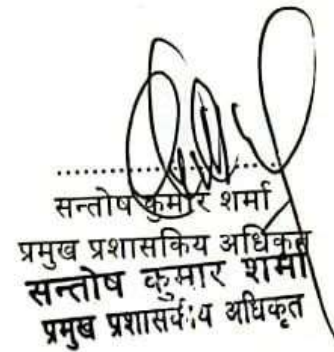 ....................................
सन्तोष कुमार शर्मा
प्रमुख प्रशासकिय अधिकृत
सन्तोष कुमार शर्मा
प्रमुख प्रशासकीय अधिकृत